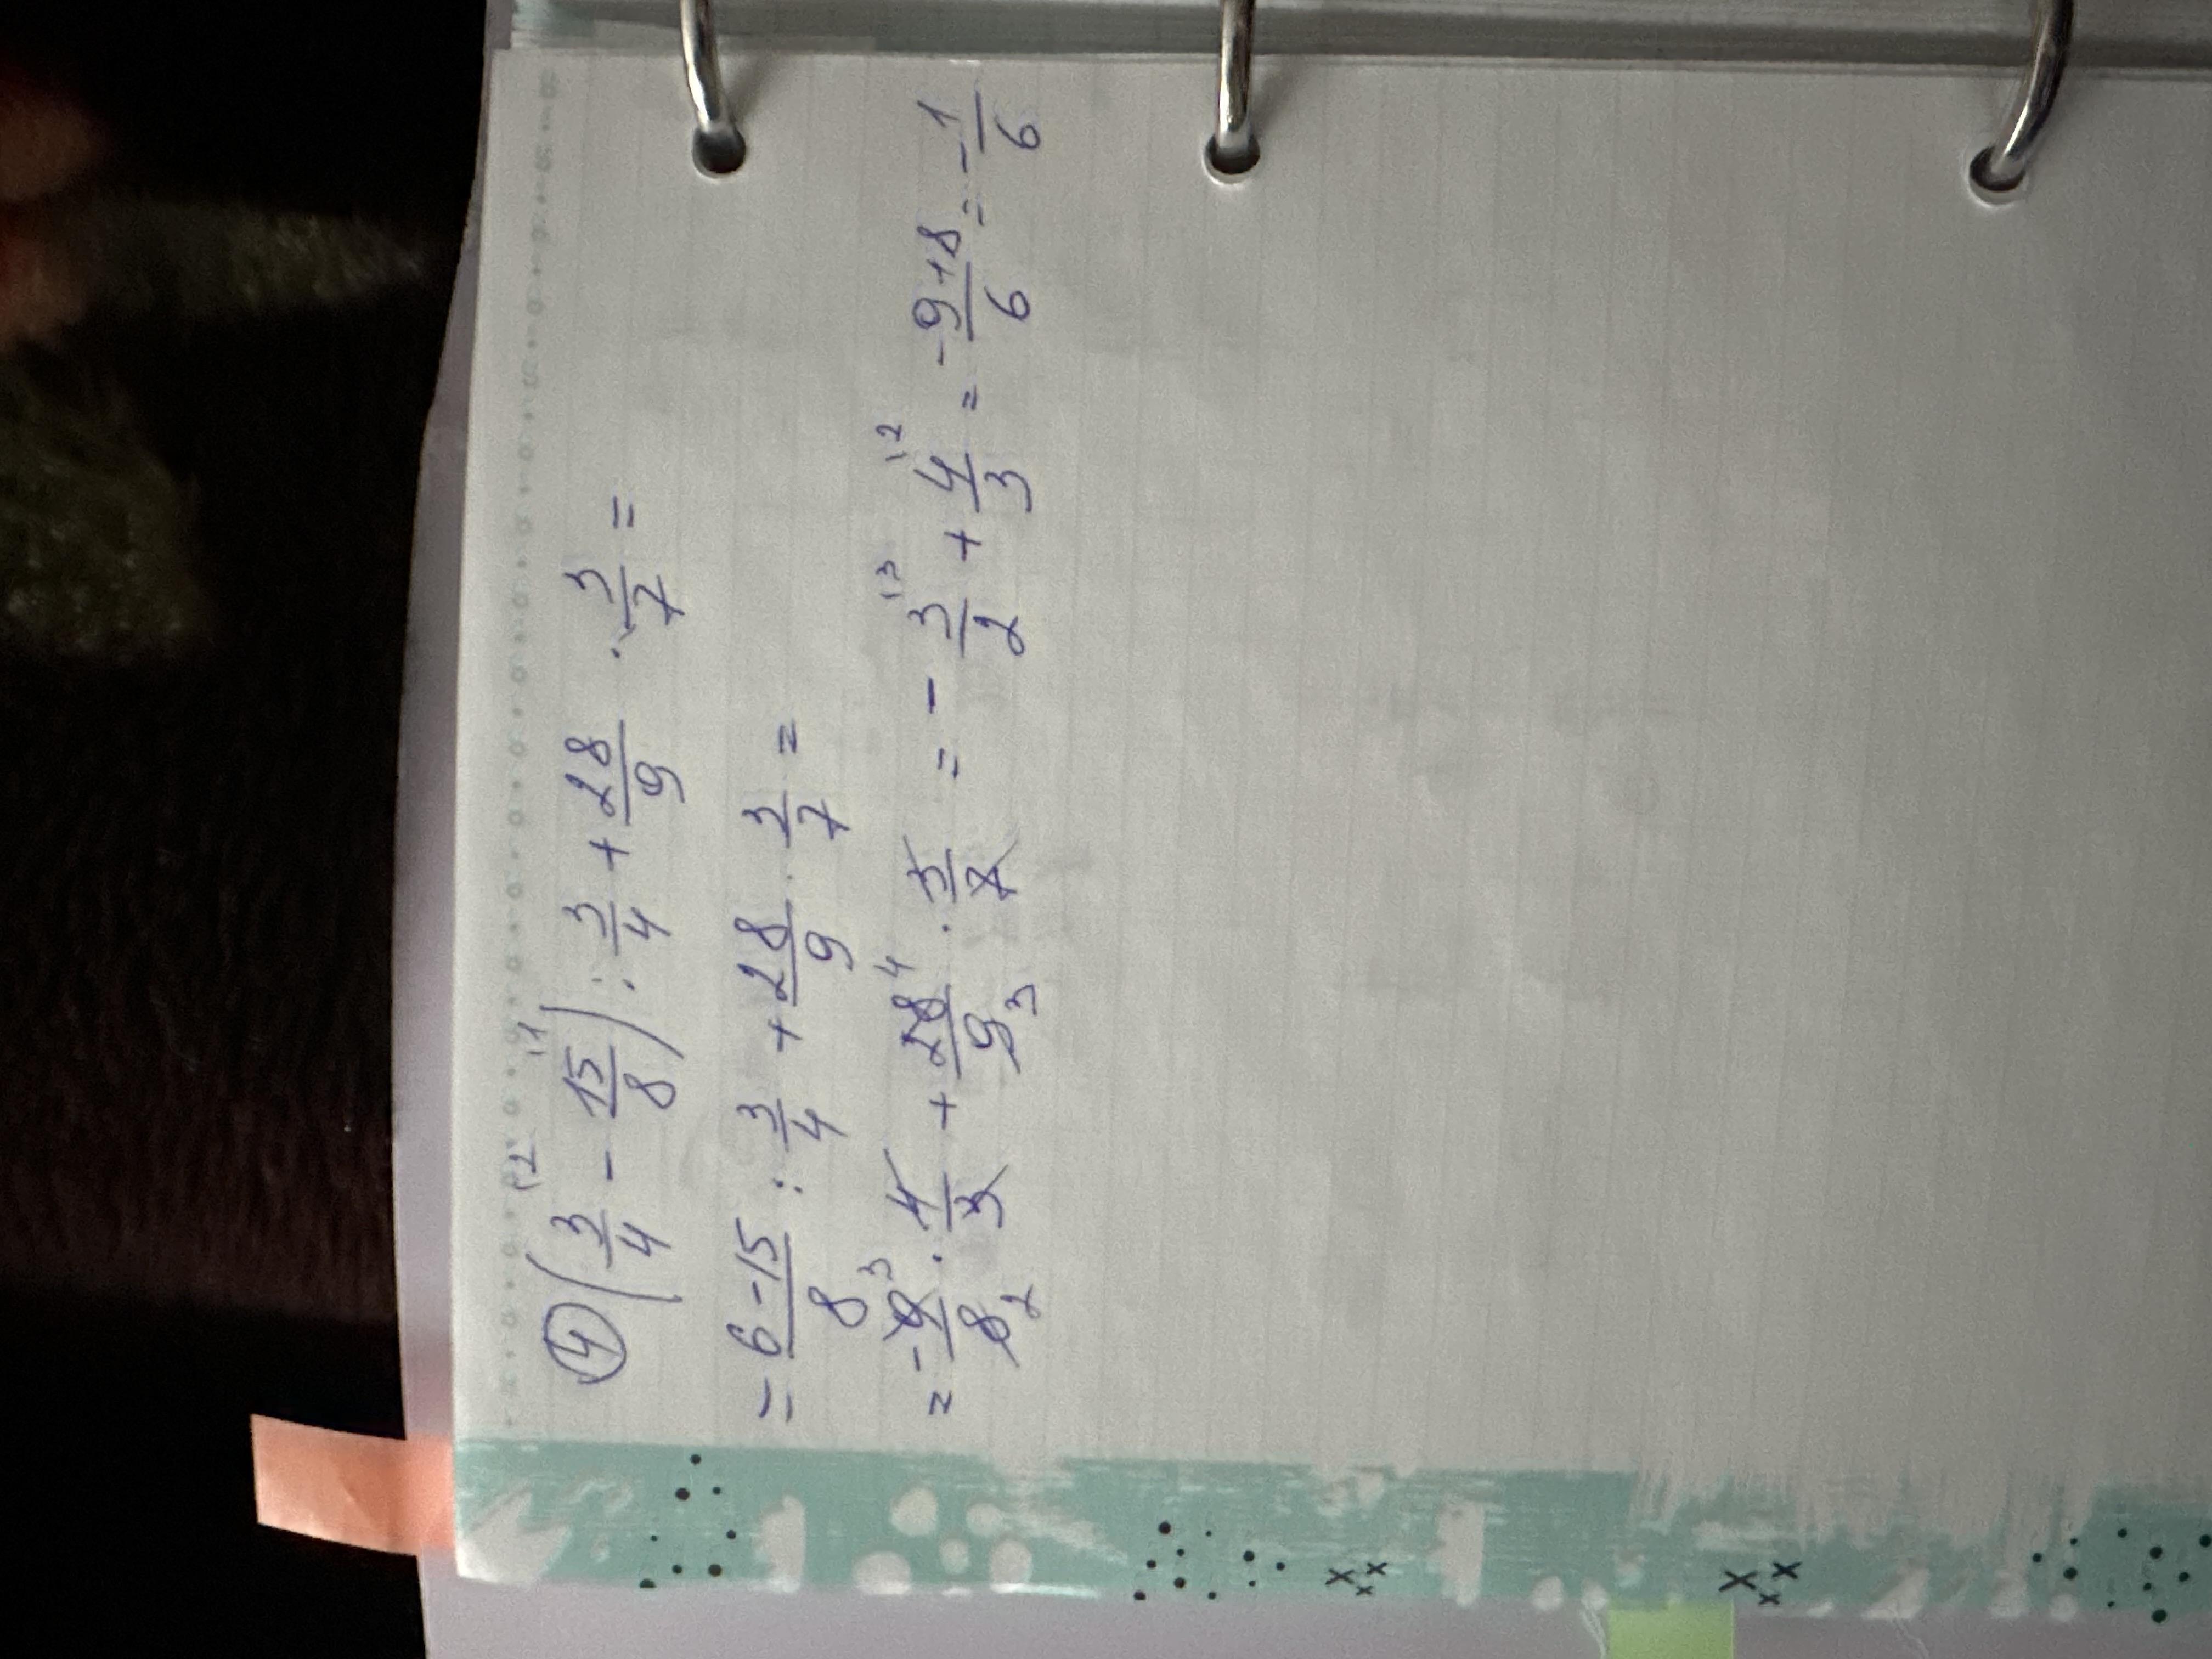 ④ (3/4 |2 - 15/8 |1) : 3/4 + 28/9 · 3/7 =
= 6-15/8 : 3/4 + 28/9 · 3/7 =
= -9/8 3 2 · 4/3 + 28/9 4 3 · 3/7 = - 3/2 |3 + 4/3 |2 = -9+8/6 = -1/6